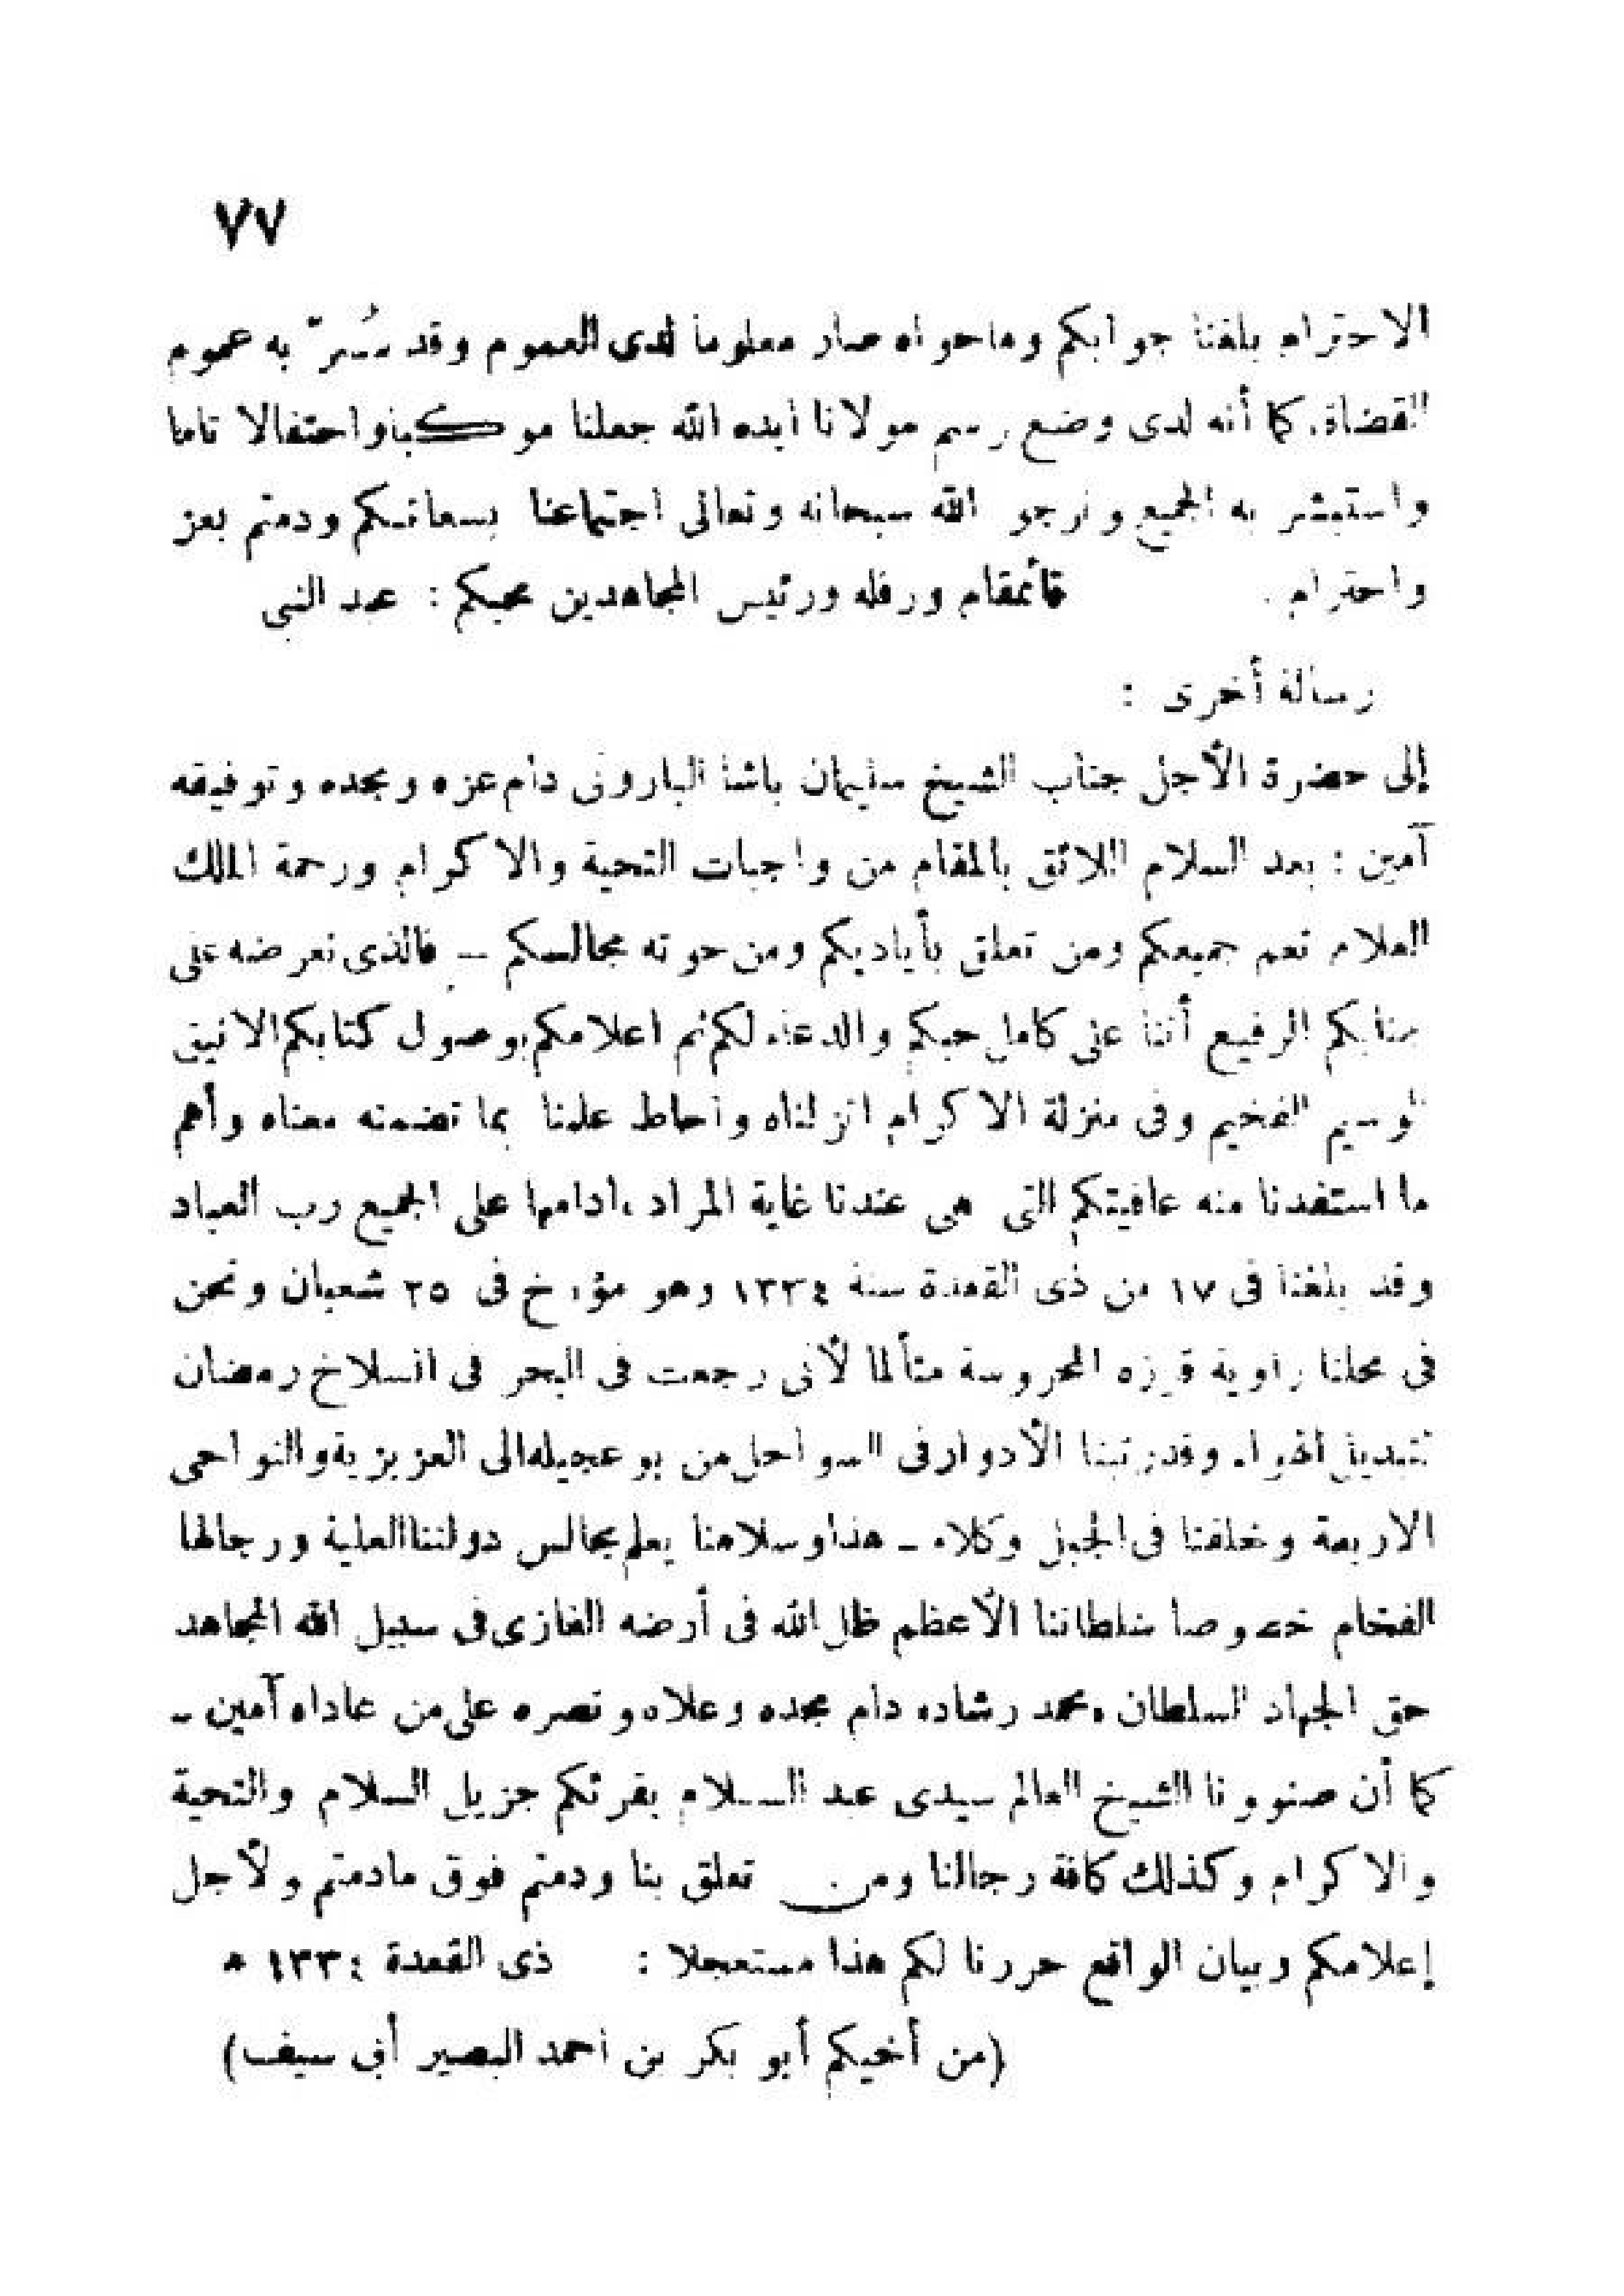 ٧٧
الاحترام بلغنا جوابكم وماحواه صار معلوما لدى العموم وقد سُرّ به عموم
القضاة. كما أنه لدى وضع رسم مولانا أيده الله جعلنا موكبا واحتفالا تاما
واستبشر به الجميع ونرجو الله سبحانه وتعالى اجتماعنا بسعادتكم ودمتم بعز
واحترام . قائمقام ورفله ورئيس المجاهدين محبكم : عبد النبى
رسالة أخرى :
إلى حضرة الأجل جناب الشيخ سليمان باشا البارونى دام عزه ومجده وتوفيقه
آمين : بعد السلام اللائق بالمقام من واجبات التحية والاكرام ورحمة الملك
العلام تعم جميعكم ومن تعلق بأياديكم ومن حوته مجالسكم – فالذى نعرضه على
جنابكم الرفيع أننا على كامل حبكم والدعاء لكم ثم اعلامكم بوصول كتابكم الانيق
الوسيم الفخيم وفى منزلة الاكرام انزلناه وأحاط علمنا بما تضمنته معناه وأهم
ما استفدنا منه عافيتكم التى هى عندنا غاية المراد ،ادامها على الجميع رب العباد
وقد بلغنا فى ١٧ من ذى القعدة سنة ١٣٣٤ وهو مؤرخ فى ٢٥ شعبان ونحن
فى محلنا زاوية قيزه المحروسة متألما لأنى رجعت فى البحر فى انسلاخ رمضان
لتبديل الهواء. وقد رتبنا الأدوار فى السواحل من بو عجيله الى العزيزية والنواحى
الاربعة وخلفنا فى الجبل وكلاء – هذا وسلامنا يعلم مجالس دولتنا العلية ورجالها
الفخام خصوصا سلطاننا الأعظم ظل الله فى أرضه الغازى فى سبيل الله المجاهد
حق الجهاد السلطان محمد رشاده دام مجده وعلاه ونصره على من عاداه آمين –
كما أن صنوونا الشيخ العالم سيدى عبد السلام يقرئكم جزيل السلام والتحية
والاكرام وكذلك كافة رجالنا ومن تعلق بنا ودمتم فوق مادمتم ولأجل
إعلامكم وبيان الواقع حررنا لكم هذا مستعجلا : ذى القعدة ١٣٣٤ ه
(من أخيكم أبو بكر بن احمد البصير أبى سيف)